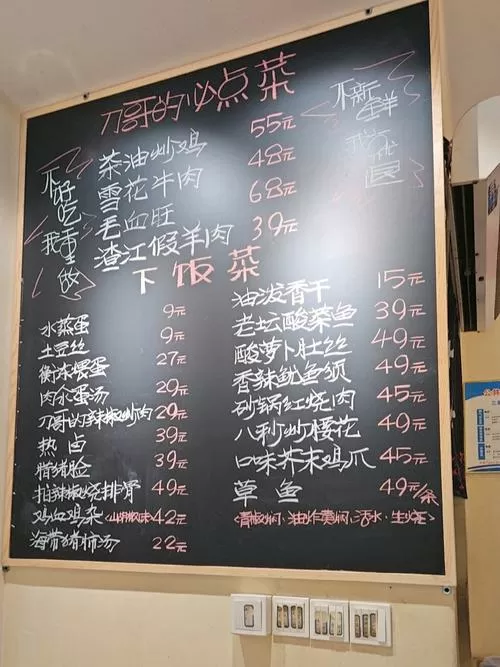 刀哥的必点菜
不好吃我重做
不新鲜我优
茶油炒鸡 55元
雪花牛肉 48元
毛血旺 68元
渣江假羊肉 39元
下饭菜
水蒸蛋 9元
土豆丝 9元
衡东煨蛋 27元
肉水蛋汤 29元
刀哥的辣椒炒肉 29元
热卤 39元
腊猪脸 39元
排骨 49元
鸡血鸡杂 42元
海带猪 汤 22元
油泼香干 15元
老坛酸菜鱼 39元
酸萝卜肚丝 49元
香辣鱿鱼须 49元
砂锅红烧肉 45元
八秒炒腰花 49元
口味芥末鸡爪 45元
草鱼 49元/条
油炸黄焖 活水